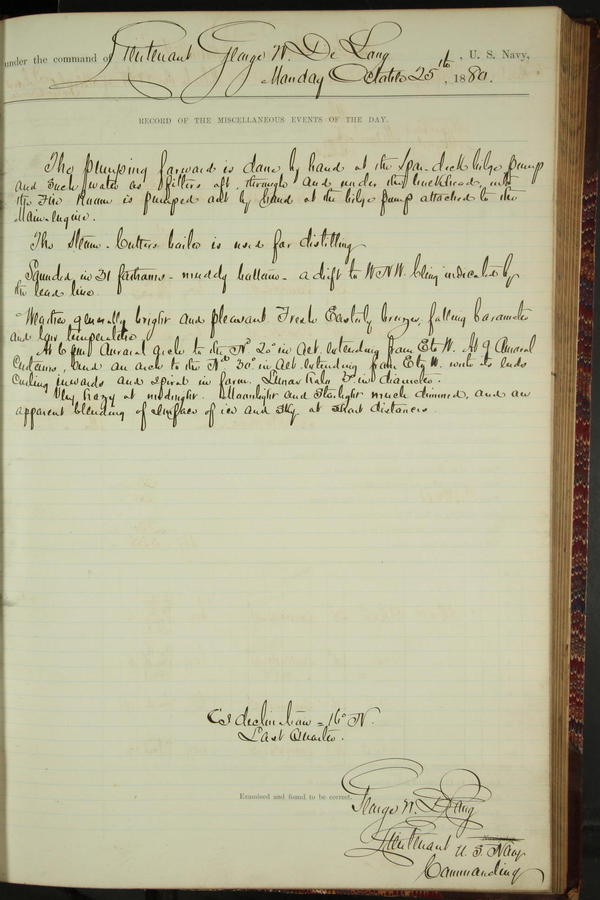 under the command of Lieutenant George W. De Long, U. S. Navy,
Monday October 25th, 1880.
RECORD OF THE MISCELLANEOUS EVENTS OF THE DAY.
The pumping forward is done by hand at the Spar-deck bilge pump
and such water as filters aft, through and under the bulkhead, into
the Fire Room is pumped out by hand at the bilge pump attached to the
Main-engine.
The Steam-Cutters boiler is used for distilling
Sounded in 31 fathoms - muddy bottom - a drift to WNW being indicated by
the lead line.
Weather generally bright and pleasant. Fresh Easterly breezes, falling barometer
and low temperature
At 6 pm Auroral arch to the Nd 20° in alt. extending from E to W. At 9 Auroral
Curtains, and an arch to the Nd 30° in alt extending from E to W. with its ends
curling inwards and spiral in form. Lunar halo in diameter.
Very hazy at midnight. Moonlight and Starlight much dimmed, and an
apparent blending of surface of ice and sky at short distances.
C's declin. = 16° N.
Last Quarter.
Examined and found to be correct.
George W. De Long
Lieutenant U. S. Navy
Commanding